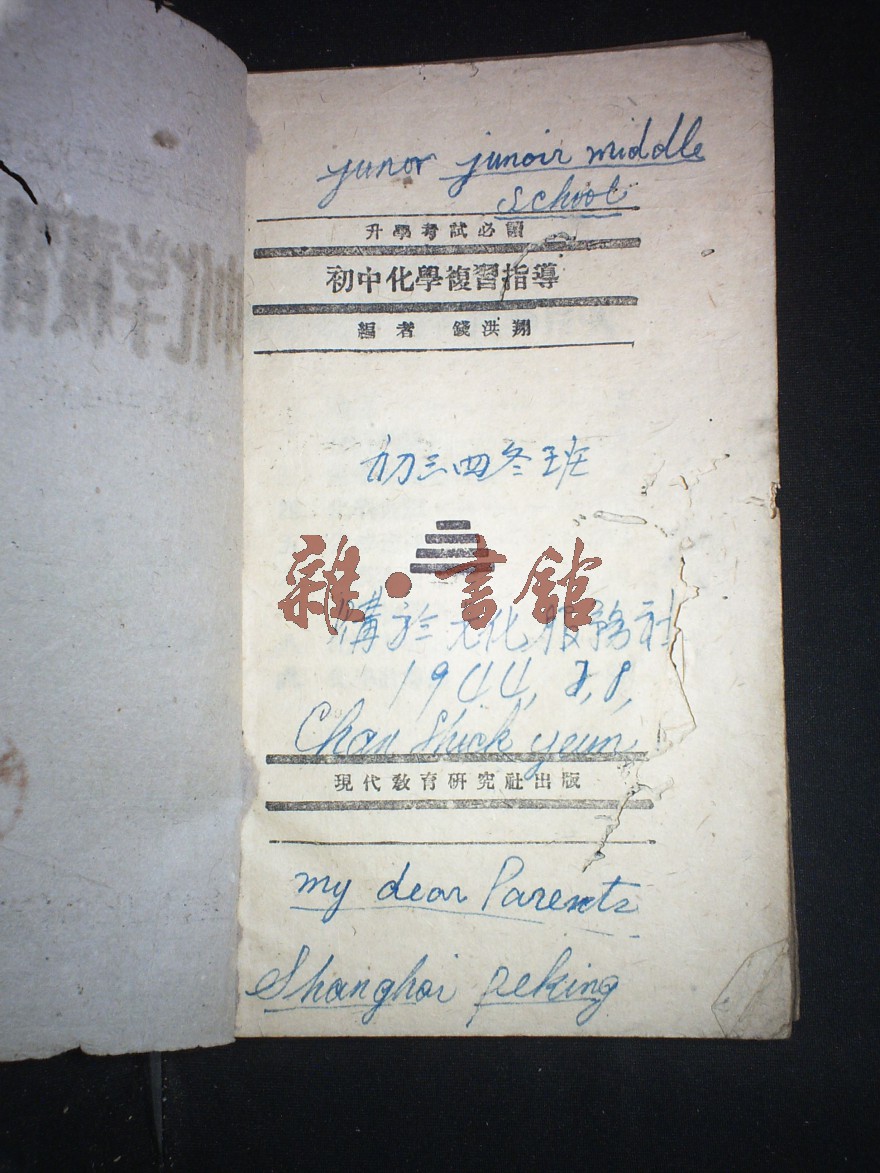 yunor junoir middle
school
升學考試必讀
初中化學複習指導
編者 錢洪翔
初三四冬班
雜·書館
購於文化服務社
1944,
Chan Shick yeun
現代教育研究社出版
my dear Parents
Shanghai peking